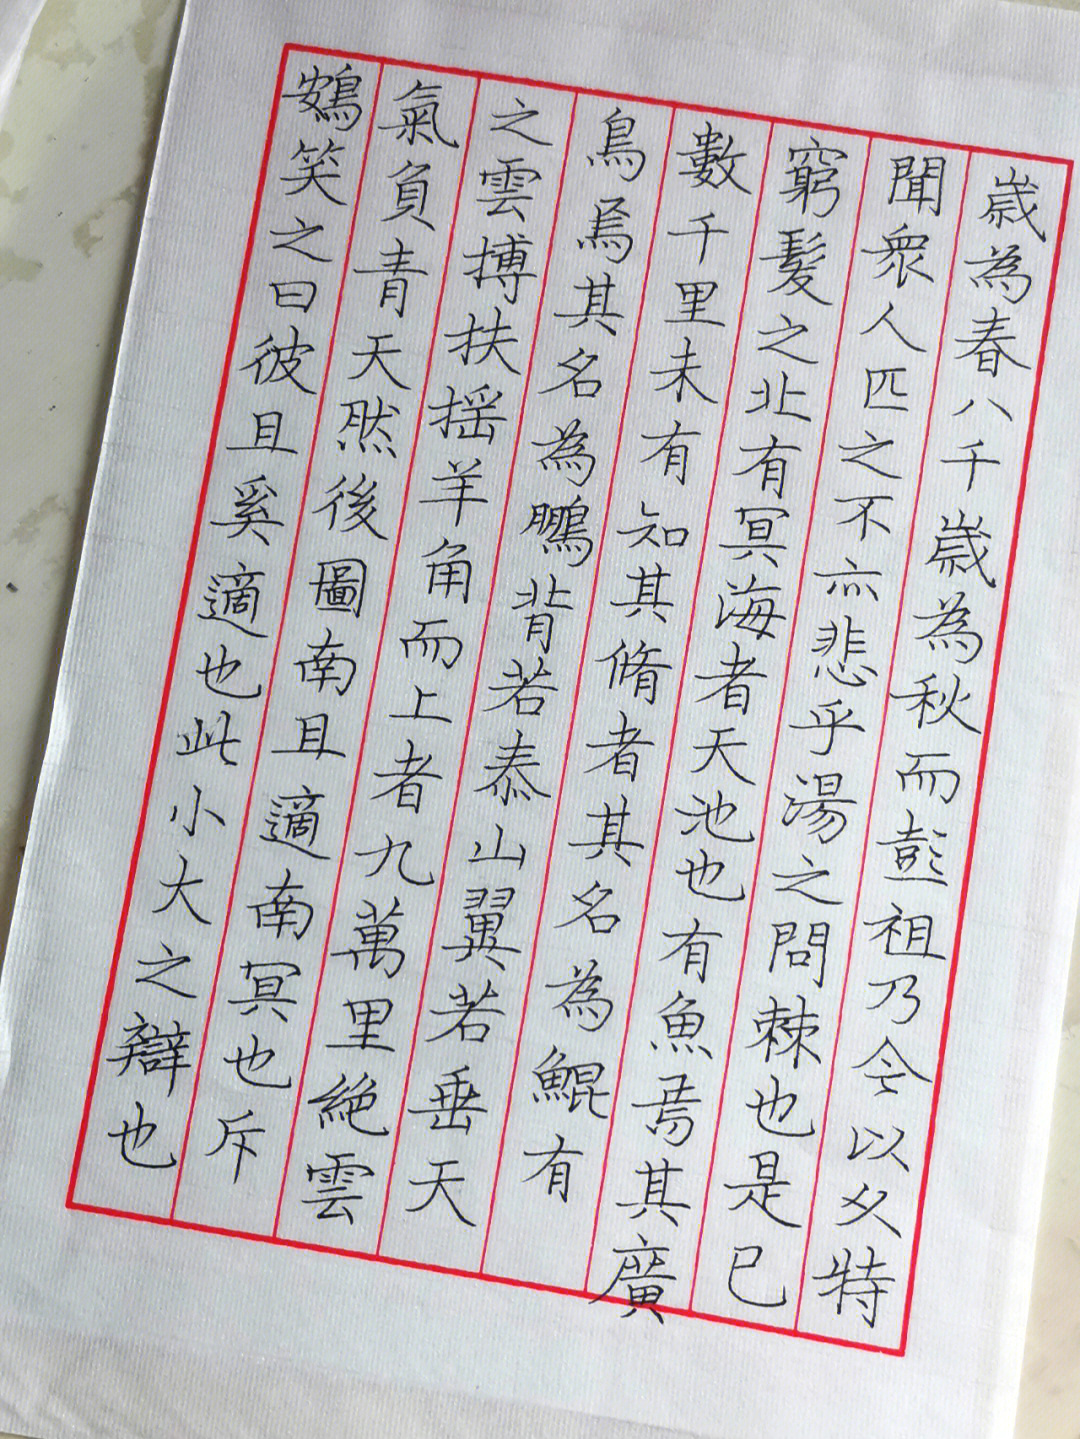 歳為春八千歳為秋而彭祖乃今以久特
聞衆人匹之不亦悲乎湯之問棘也是已
窮髮之北有冥海者天池也有魚焉其廣
數千里未有知其脩者其名為鯤有
鳥焉其名為鵬背若泰山翼若垂天
之雲搏扶揺羊角而上者九萬里絶雲
氣負青天然後圖南且適南冥也斥
鴳笑之曰彼且奚適也此小大之辯也